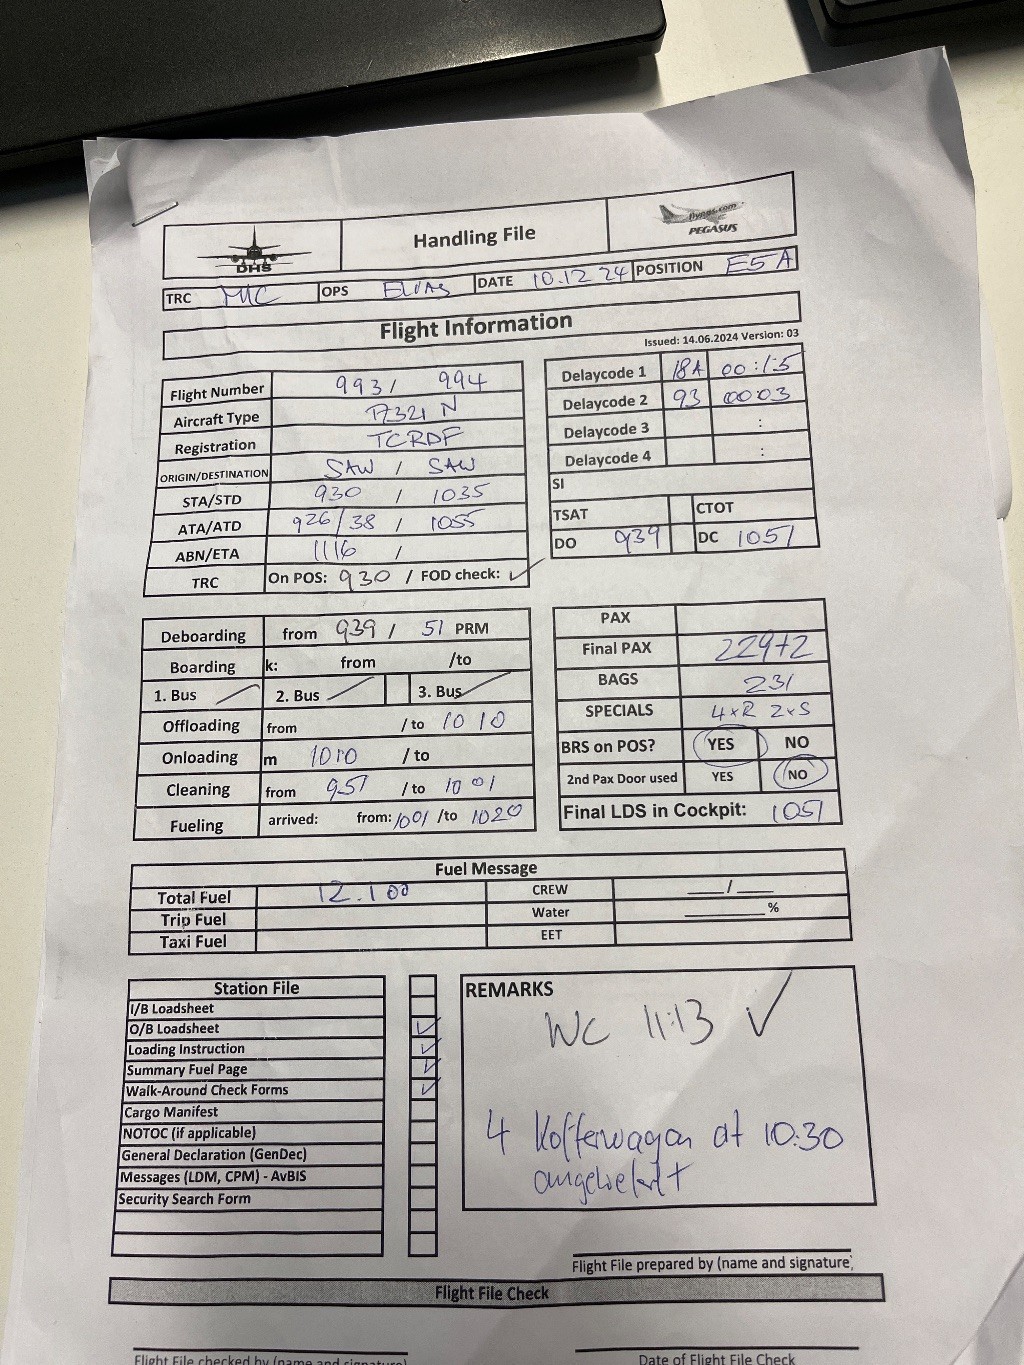 DHS
Handling File
flypgs.com
PEGASUS
TRC MIC OPS DATE 10.12 24 POSITION E5A
Flight Information
Issued: 14.06.2024 Version: 03
Flight Number 993 / 994
Aircraft Type A321 N
Registration TCRDF
ORIGIN/DESTINATION SAW / SAW
STA/STD 930 / 1035
ATA/ATD 926/38 / 1055
ABN/ETA 1116 /
TRC On POS: 930 / FOD check: ✓
Delaycode 1 18A 00:15
Delaycode 2 93 00:03
Delaycode 3 :
Delaycode 4 :
SI
TSAT CTOT
DO 939 DC 1051
Deboarding from 939 / 51 PRM
Boarding k: from /to
1. Bus 2. Bus 3. Bus
Offloading from / to 1010
Onloading m 1010 / to
Cleaning from 957 / to 1001
Fueling arrived: from: 1001 /to 1020
PAX
Final PAX 229+2
BAGS 231
SPECIALS 4xR 2xS
BRS on POS? YES NO
2nd Pax Door used YES NO
Final LDS in Cockpit: 1051
Fuel Message
Total Fuel 12.100 CREW ___/___
Trip Fuel Water ________%
Taxi Fuel EET
Station File
I/B Loadsheet
O/B Loadsheet ✓
Loading Instruction ✓
Summary Fuel Page ✓
Walk-Around Check Forms ✓
Cargo Manifest
NOTOC (if applicable)
General Declaration (GenDec)
Messages (LDM, CPM) - AvBIS
Security Search Form
REMARKS
WC 11:13 ✓
4 Kofferwagen at 10:30
angeliefert
Flight File prepared by (name and signature)
Flight File Check
Flight File checked by (name and signature)
Date of Flight File Check